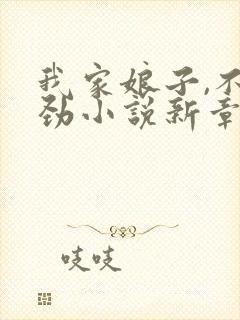 我家娘子,不
劲小說新章
吱吱